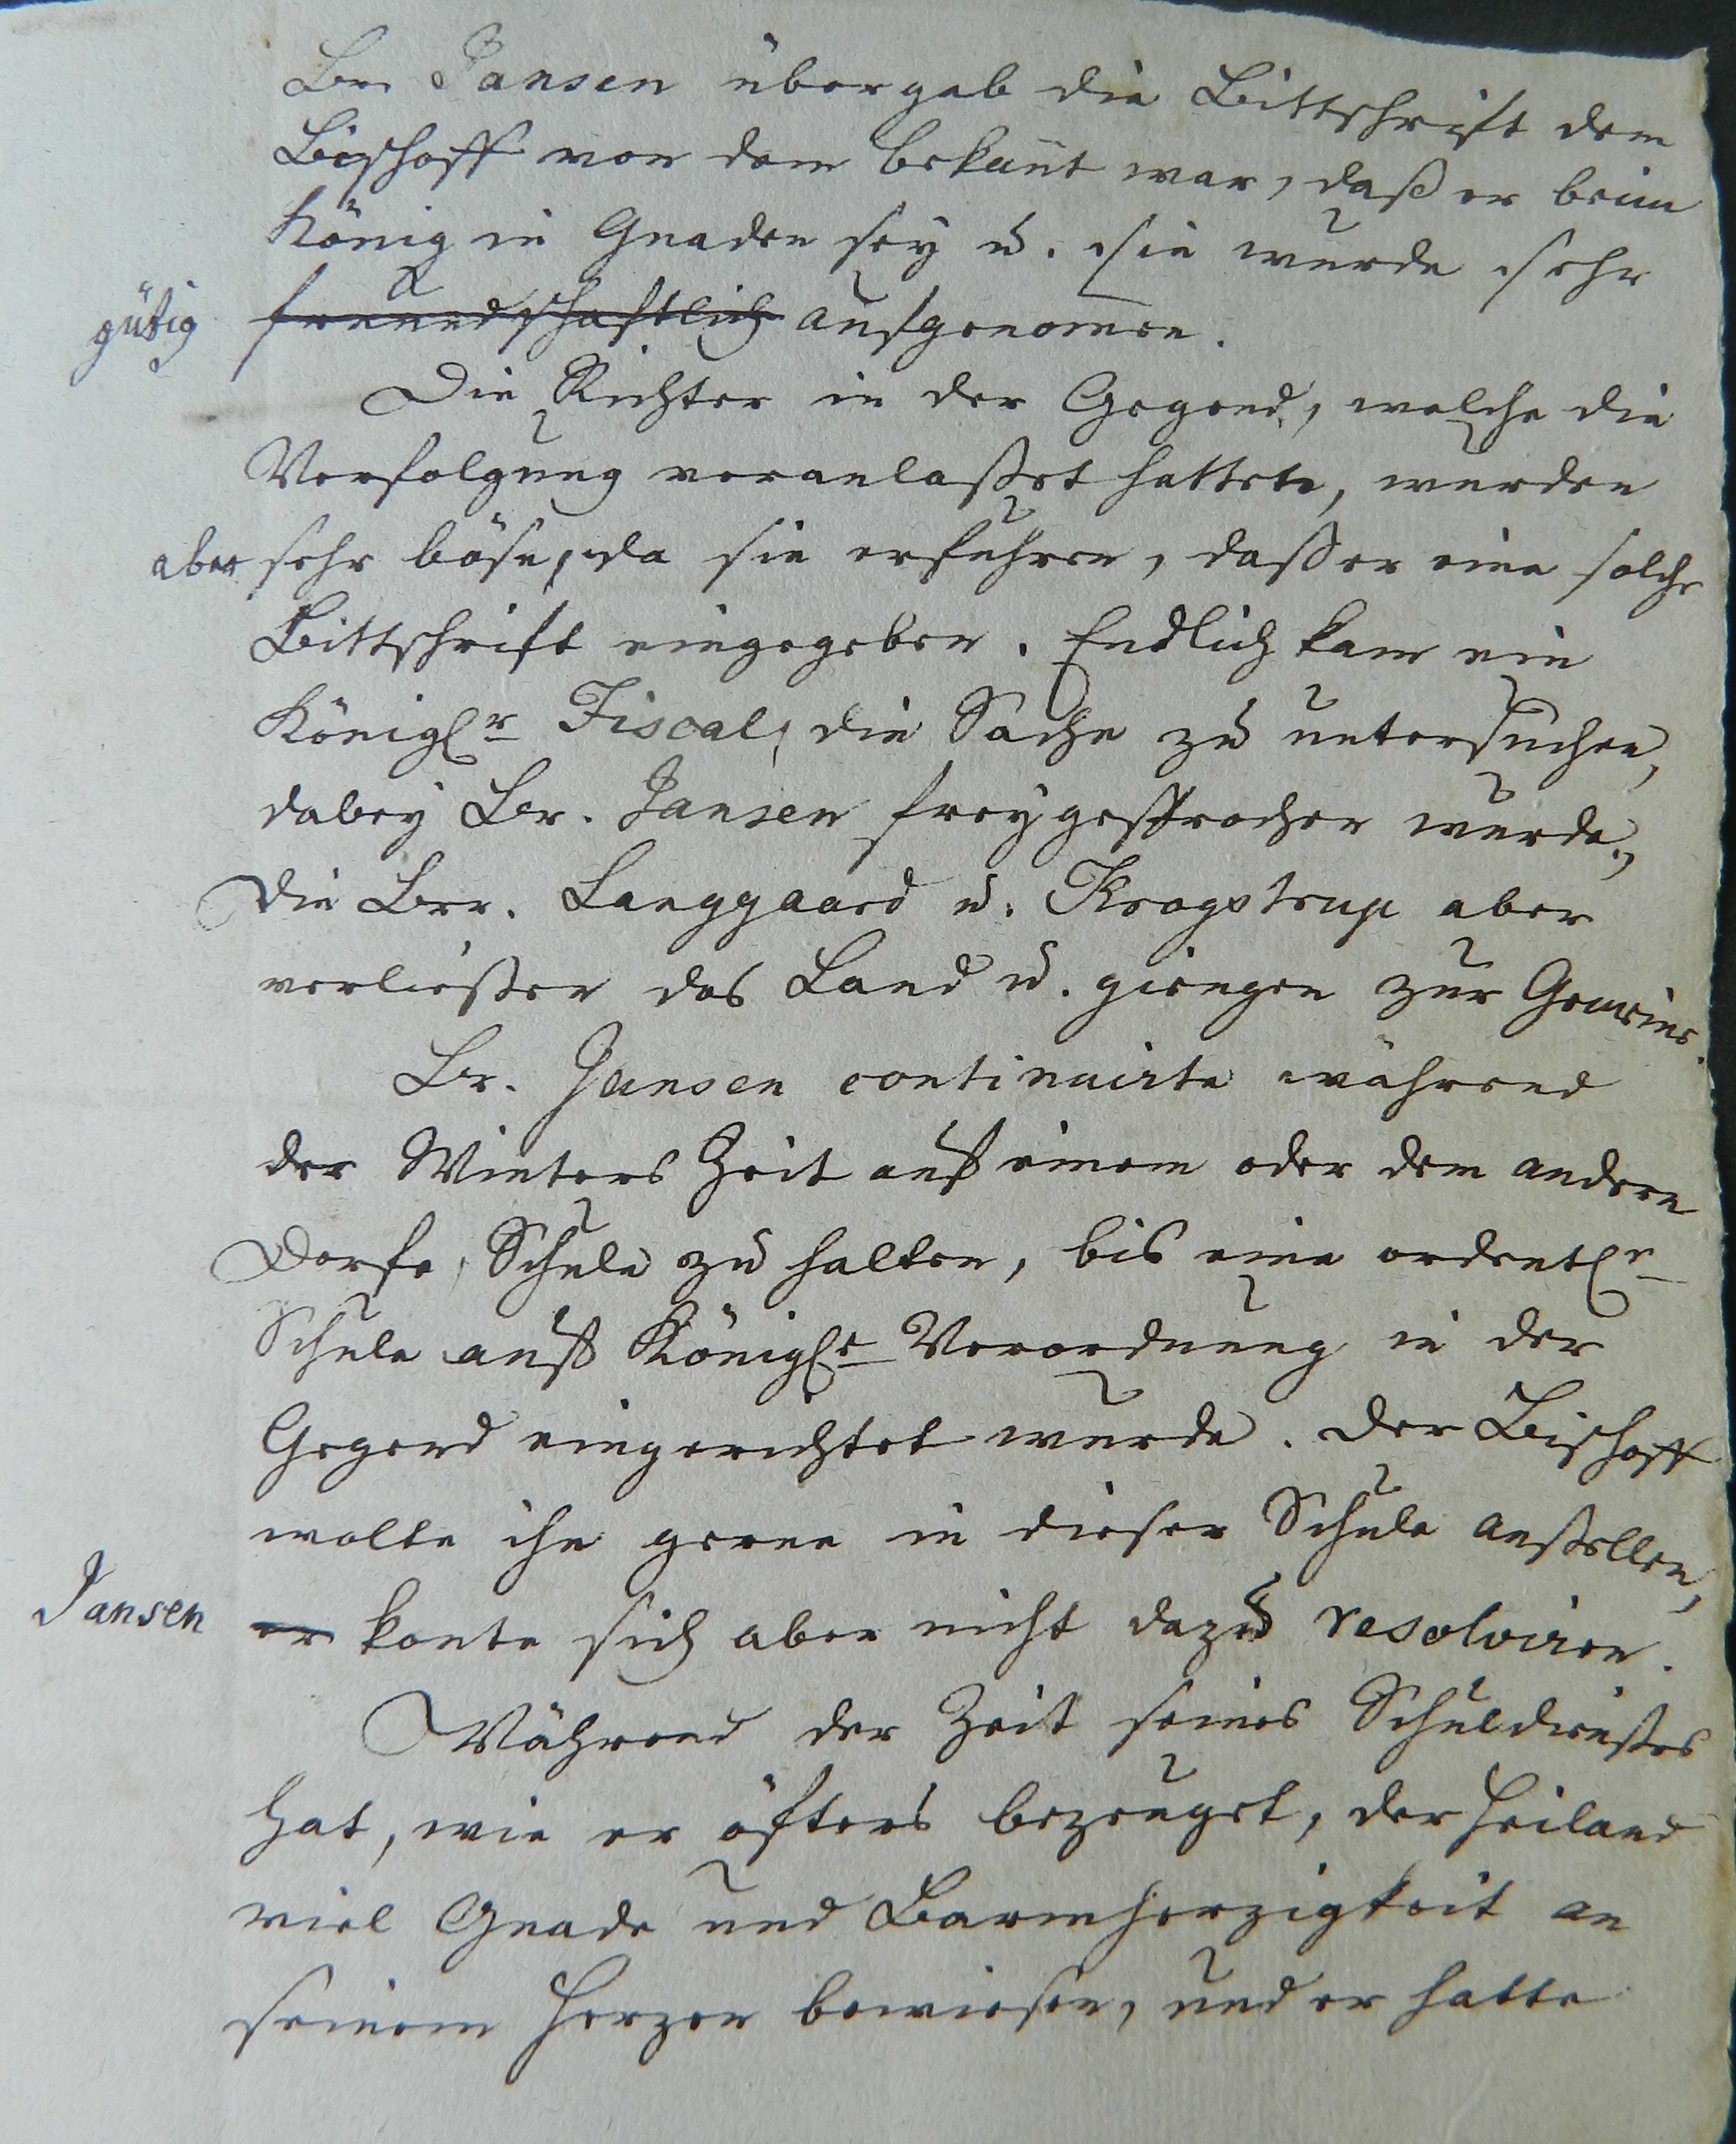 Br. Jansen übergab die Bittschrift dem
Bischoff von dem bekañt war, daß er beim
König in Gnaden sey u. sie wurde sehr
gütig freundschaftlich aufgenomen.
Die Richter in der Gegend, welche die
Verfolgung veranlaßet hatten, wurden
aber sehr böse, da sie erfuhren, daß er eine solche
Bittschrift eingegeben. Endlich kam ein
Königlr Fiscal, die Sache zu untersuchen,
dabey Br. Jansen freygesprochen wurde,
Die Brr. Langgaard u. Krogstrup aber
verließen das Land u. giengen zur Gemeine.
Br. Jansen continuirte während
der Winters Zeit auf einem oder dem andern
Dorfe, Schule zu halten, bis eine ordentle
Schule auf Königle Verordnung in der
Gegend eingerichtet wurde. Der Bischoff
wolte ihn gerne in dieser Schule anstellen,
Jansen er konte sich aber nicht dazu resolviren.
Während der Zeit seines Schuldienstes
hat, wie er öfters bezeuget, der Heiland
viel Gnade und Barmherzigkeit an
seinem Herzen bewiesen, und er hatte